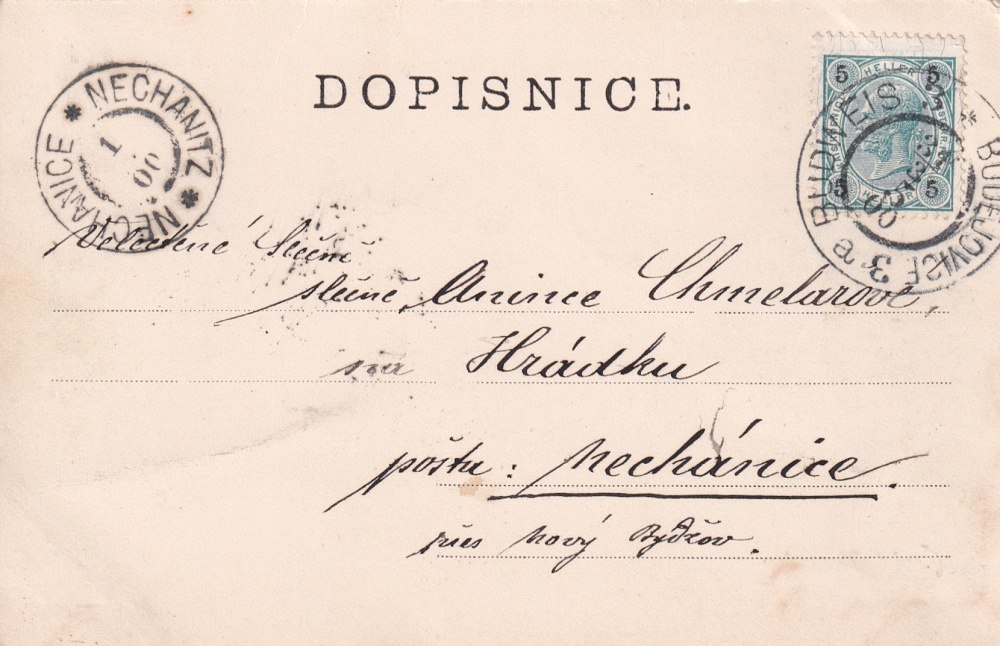 DOPISNICE.
NECHANITZ * NECHANICE *
1
00
5 HELLER 5
5 5
BUDWEIS * BUDĚJOVICE 3
00
Velectěné Slečně
slečně Anince Chmelarove,
na Hrádku
poštu: Nechánice.
přes Nový Bydžov.